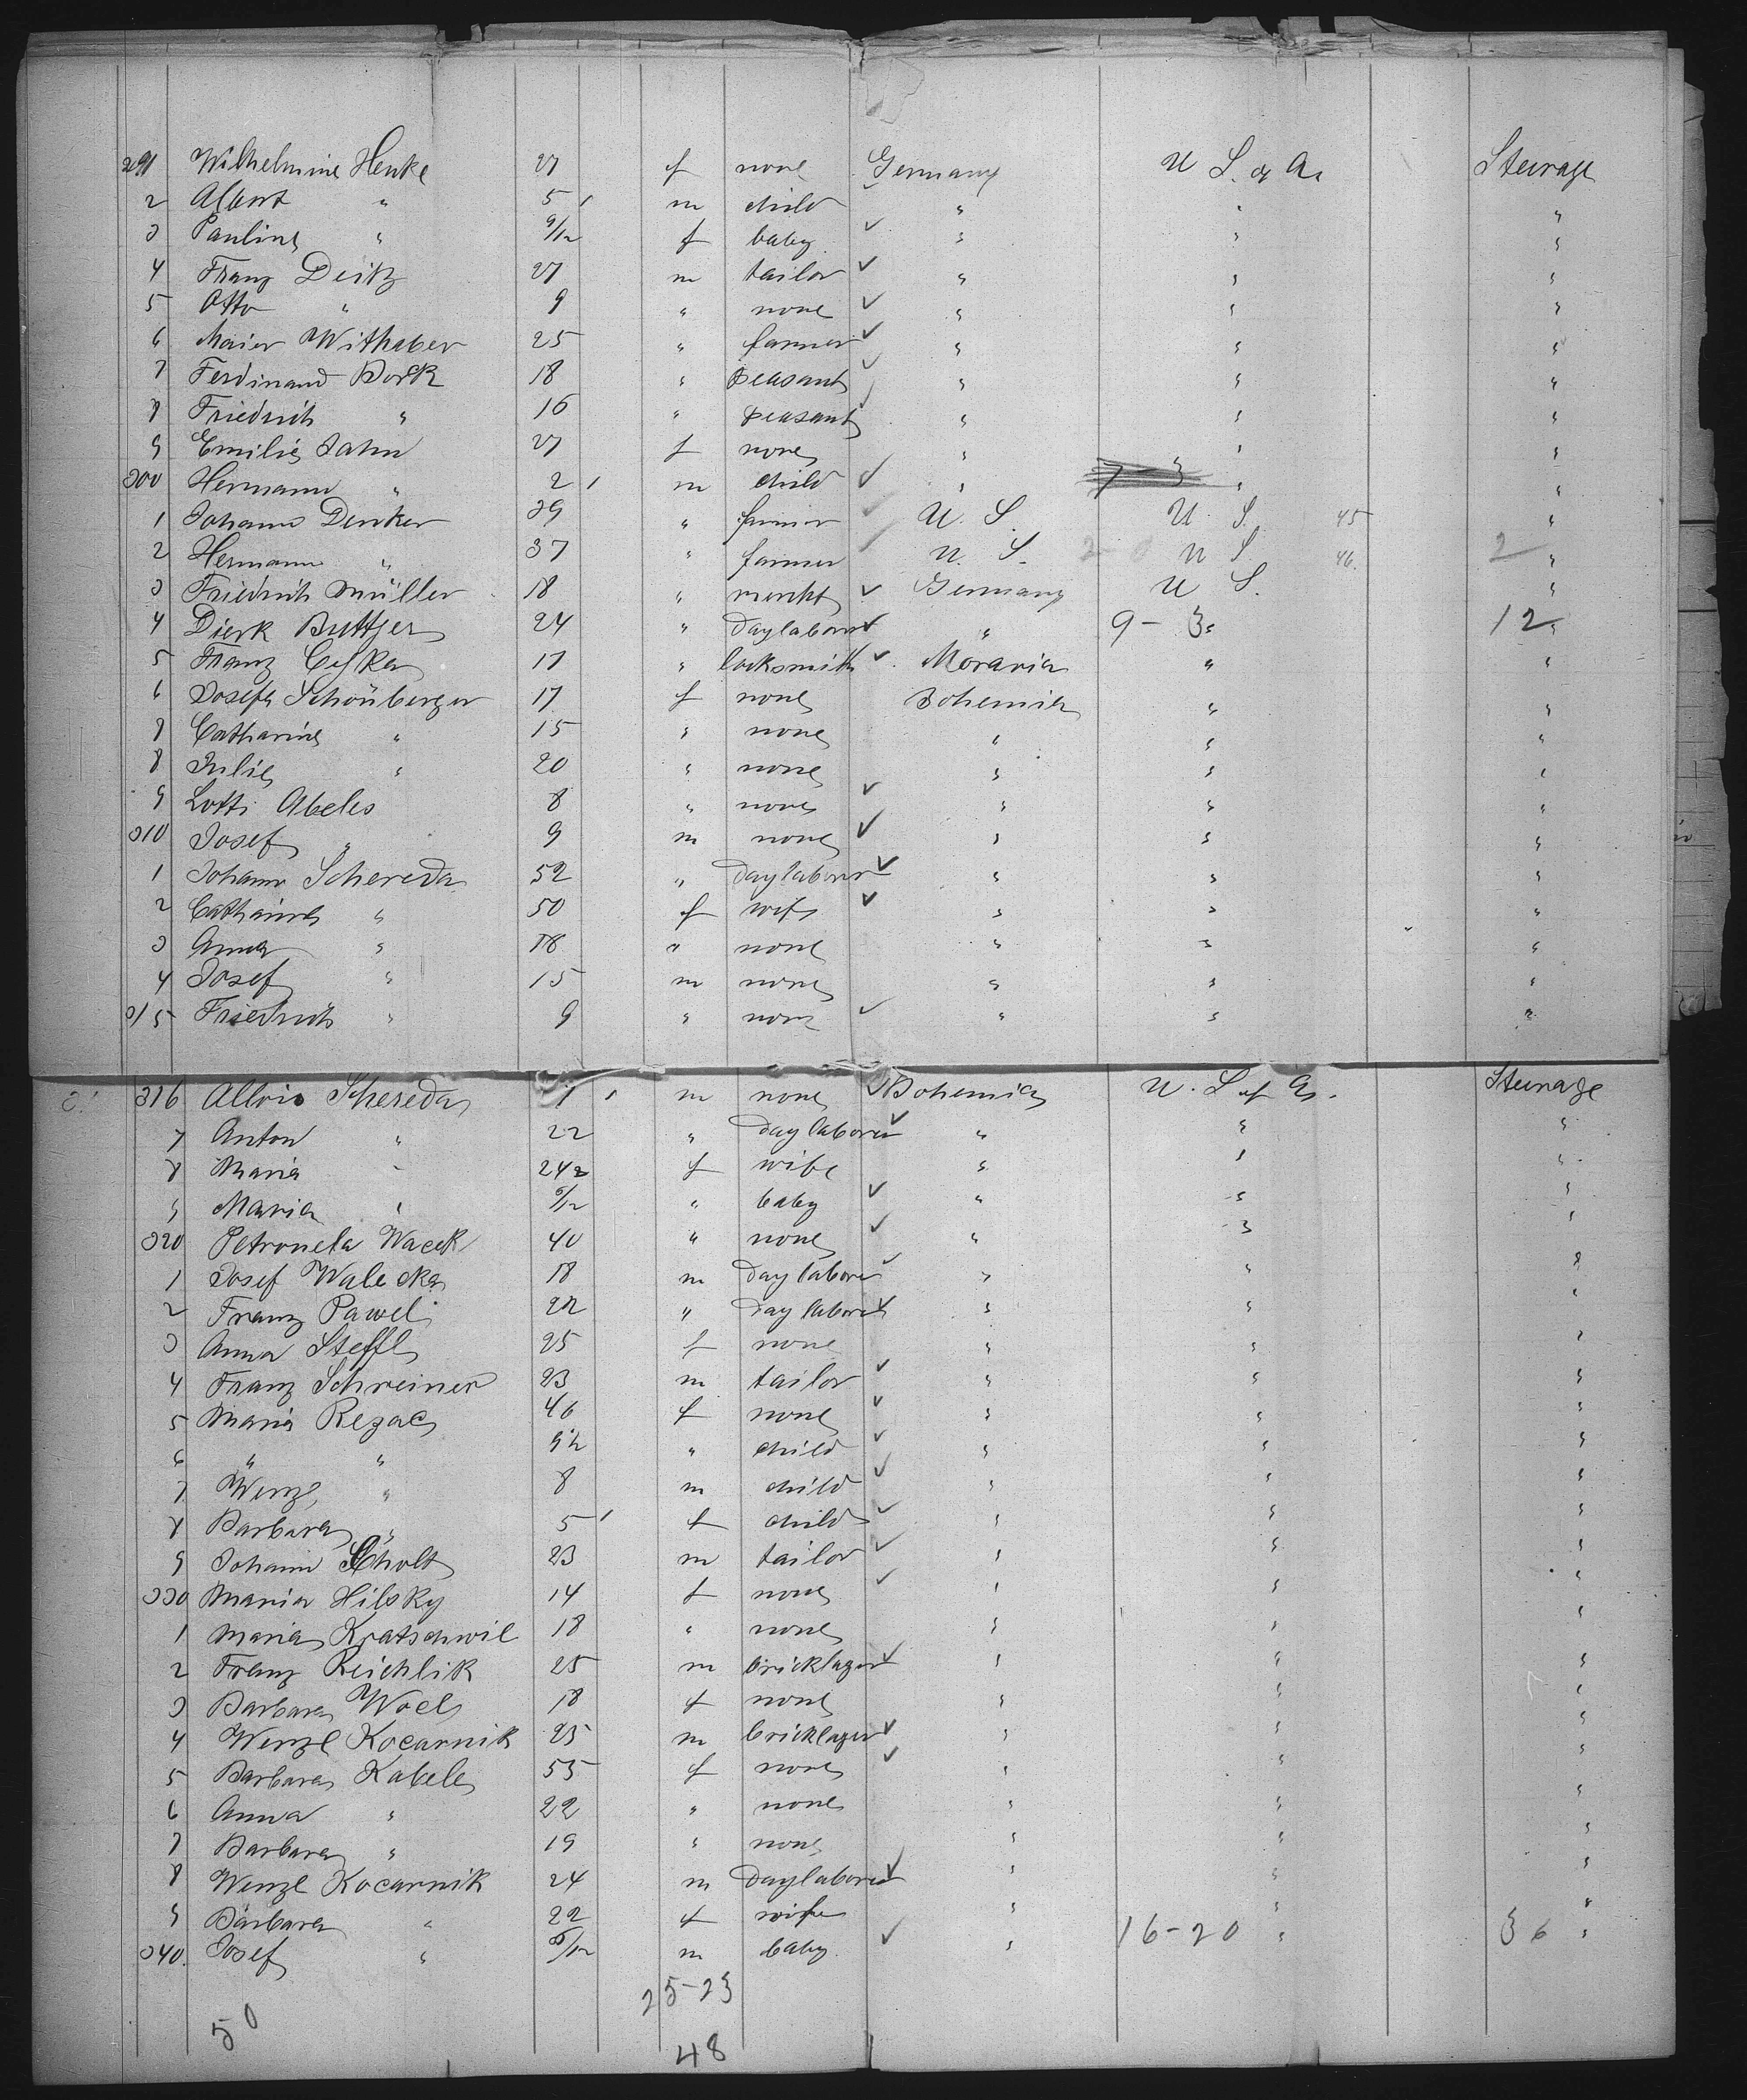 291 Wilhelmine Henke 27 f none Germany U S. of A. Steerage
2 Albert " 5 m child " " "
3 Pauline " 9/12 f baby " " "
4 Franz Deitz 27 m tailor " " "
5 Otto " 9 " none " " "
6 Maier Withaber 25 " farmer " " "
7 Ferdinand Dork 18 " peasant " " "
8 Friedrich " 16 " peasant " " "
9 Emilie Jahn 27 f none " " "
300 Hermann " 2 m child " " "
1 Johann Denker 39 " farmer U. S. U. S. 45 "
2 Hermann " 37 " farmer U. S. U S 46. 2 "
3 Friedrich Müller 18 " merkt Germany U S. "
4 Dierk Buttjer 24 " daylaborer " 9 - 3 " 12 "
5 Franz Ceska 17 " locksmith Moravia " "
6 Josefa Schönberger 17 f none Bohemia " "
7 Catharine " 15 " none " " "
8 Julie " 20 " none " " "
9 Lotti Abeles 8 " none " " "
310 Josef " 9 m none " " "
1 Johann Schereda 52 " daylaborer " " "
2 Catharine " 50 f wife " " "
3 Anna " 18 " none " " "
4 Josef " 15 m none " " "
315 Friedrich " 9 " none " " "
316 Allois Schereda 1 m none Bohemia U. S of A. Steerage
7 Anton " 22 " day laborer " " "
8 Maria " 24 f wife " " "
9 Maria " 6/12 " baby " " "
320 Petronela Wacek 40 " none " " "
1 Josef Walecka 18 m day laborer " " "
2 Franz Pawel 22 " day laborer " " "
3 Anna Steffl 25 f none " " "
4 Franz Schreiner 23 m tailor " " "
5 Maria Rezac 46 f none " " "
6 " " 9½ " child " " "
7 Wenzl " 8 m child " " "
8 Barbara " 5 f child " " "
9 Johann Scholt 23 m tailor " " "
330 Maria Hilsky 14 f none " " "
1 Maria Kratschwil 18 " none " " "
2 Franz Reichlik 25 m bricklayer " " "
3 Barbara Wocl 18 f none " " "
4 Wenzl Kocarnik 25 m bricklayer " " "
5 Barbara Kabele 55 f none " " "
6 Anna " 22 " none " " "
7 Barbara " 19 " none " " "
8 Wenzl Kocarnik 24 m daylaborer " " "
9 Barbara " 22 f wife " " "
340. Josef " 8/12 m baby " 16-20 " 36 "
25-23
50
48